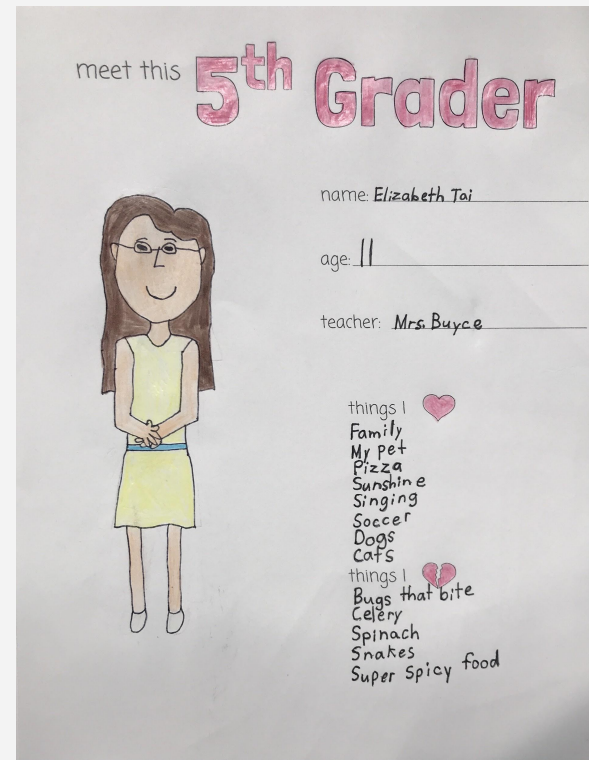 meet this 5th Grader
name: Elizabeth Tai
age: 11
teacher: Mrs. Buyce
things I
Family
My pet
Pizza
Sunshine
Singing
Soccer
Dogs
Cats
things I
Bugs that bite
Celery
Spinach
Snakes
Super Spicy food